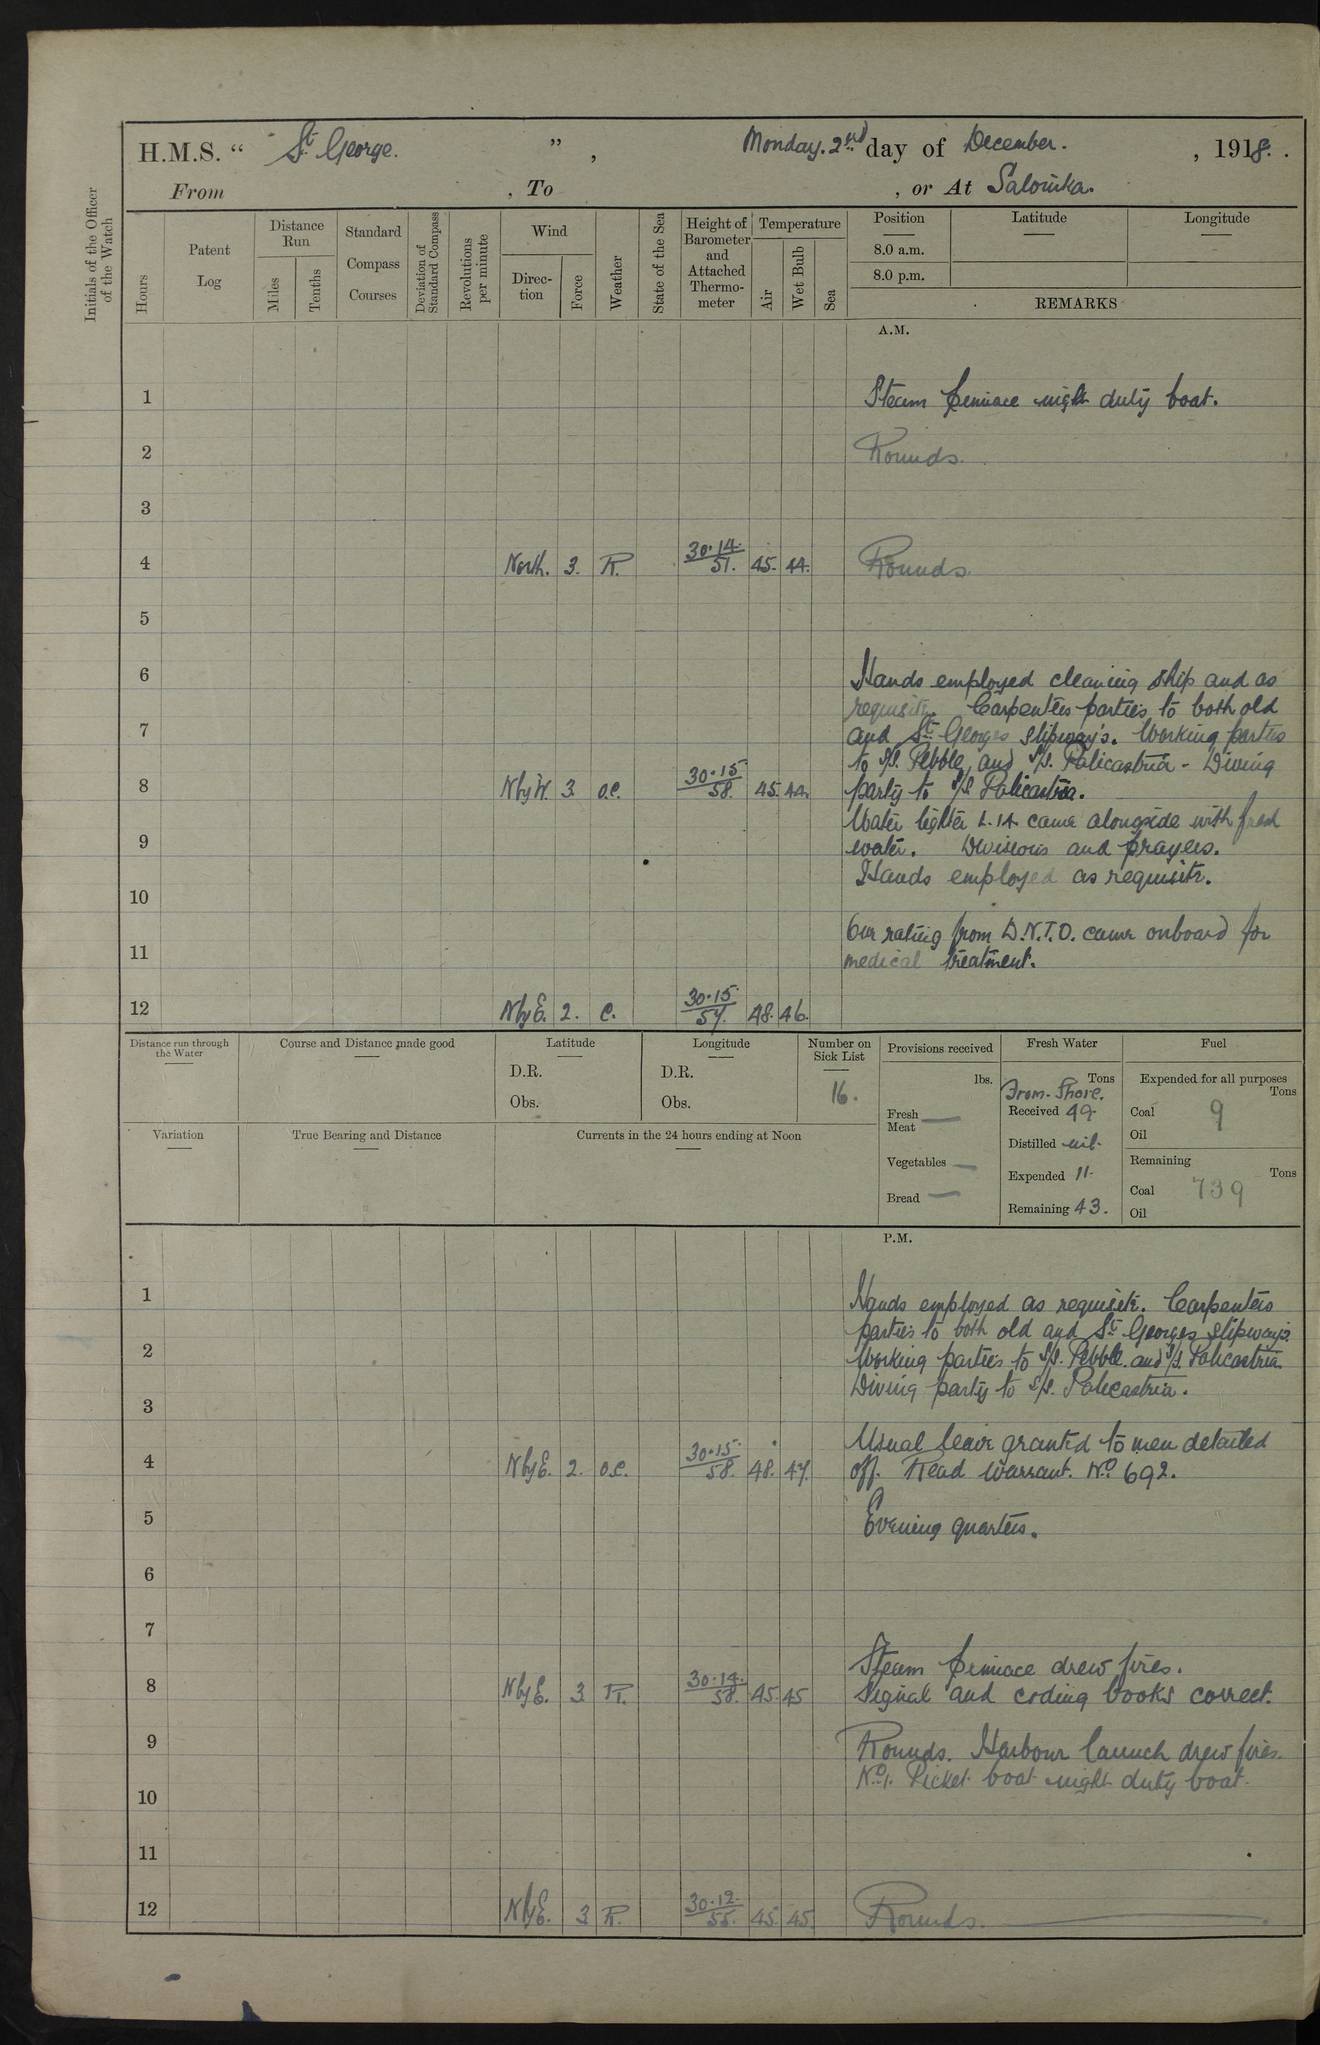 H.M.S. “ St George. ” , Monday. 2nd day of December. , 1918. .
From , To , or At Salonika.
Initials of the Officer of the Watch
Hours
Patent Log
Distance Run
Miles
Tenths
Standard Compass Courses
Deviation of Standard Compass
Revolutions per minute
Wind
Direc-tion
Force
Weather
State of the Sea
Height of Barometer and Attached Thermo-meter
Temperature
Air
Wet Bulb
Sea
Position Latitude Longitude
8.0 a.m.
8.0 p.m.
REMARKS
A.M.
1 Steam Pinnace night duty boat.
2 Rounds.
3
4 North. 3. R. 30.14. 51. 45. 44. Rounds.
5
6 Hands employed cleaning ship and as
requisite. Carpenters parties to both old
7 and St Georges slipways. Working parties
to S/S. Pebble and S/S. Palicastria - Diving
8 N by W. 3. o.c. 30.15 58. 45. 44. party to S/S Palicastria.
Water lighter L.14 came alongside with fresh
9 water. Divisions and prayers.
Hands employed as requisite.
10
One rating from D.N.T.O. came onboard for
11 medical treatment.
12 N by E. 2. c. 30.15. 57. 48. 46.
Distance run through the Water
Course and Distance made good
Latitude
D.R.
Obs.
Longitude
D.R.
Obs.
Number on Sick List
16.
Provisions received
lbs.
Fresh Meat —
Vegetables —
Bread —
Fresh Water
Tons
From Shore.
Received 49
Distilled nil.
Expended 11.
Remaining 43.
Fuel
Expended for all purposes
Tons
Coal 9
Oil
Remaining
Tons
Coal 739
Oil
Variation
True Bearing and Distance
Currents in the 24 hours ending at Noon
P.M.
1 Hands employed as requisite. Carpenters
parties to both old and St Georges slipways.
2 Working parties to S/S. Pebble. and S/S. Palicastria.
Diving party to S/S. Palicastria.
3
Usual leave granted to men detailed
4 N by E. 2. o.c. 30.15. 58. 48. 47. off. Read Warrant. No 692.
5 Evening quarters.
6
7
Steam Pinnace drew fires.
8 N by E. 3. R. 30.14. 58. 45. 45 Signal and coding books correct.
9 Rounds. Harbour launch drew fires.
No 1. Picket boat night duty boat.
10
11
12 N by E. 3. R. 30.12. 55. 45. 45. Rounds.